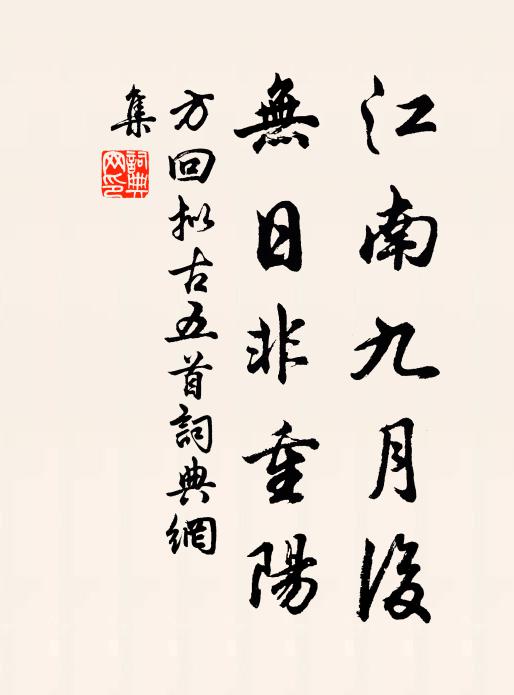 江南九月後
無日非重陽
方回拟古五首詞典網
集
詞典
网印